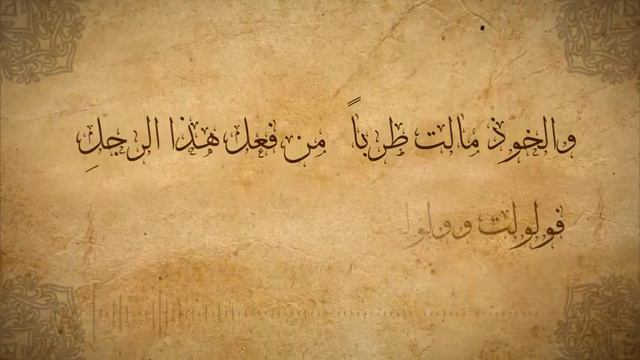 والخوذ مالت طرباً من فعل هذا الرجلِ
فولولت وولولـ